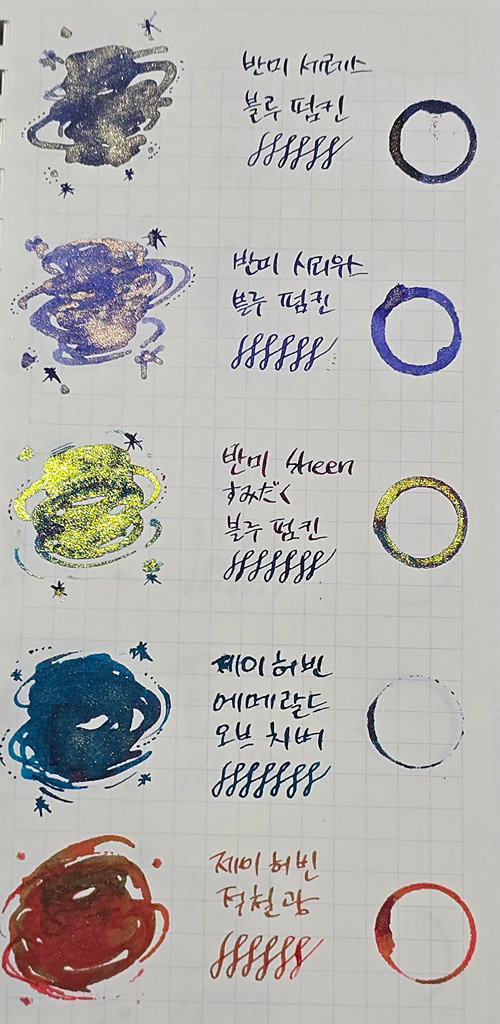 반미 세레스
블루 펌킨
반미 시리우스
블루 펌킨
반미 Sheen
すみだく
블루 펌킨
제이허빈
에메랄드
오브 치버
제이허빈
적철광